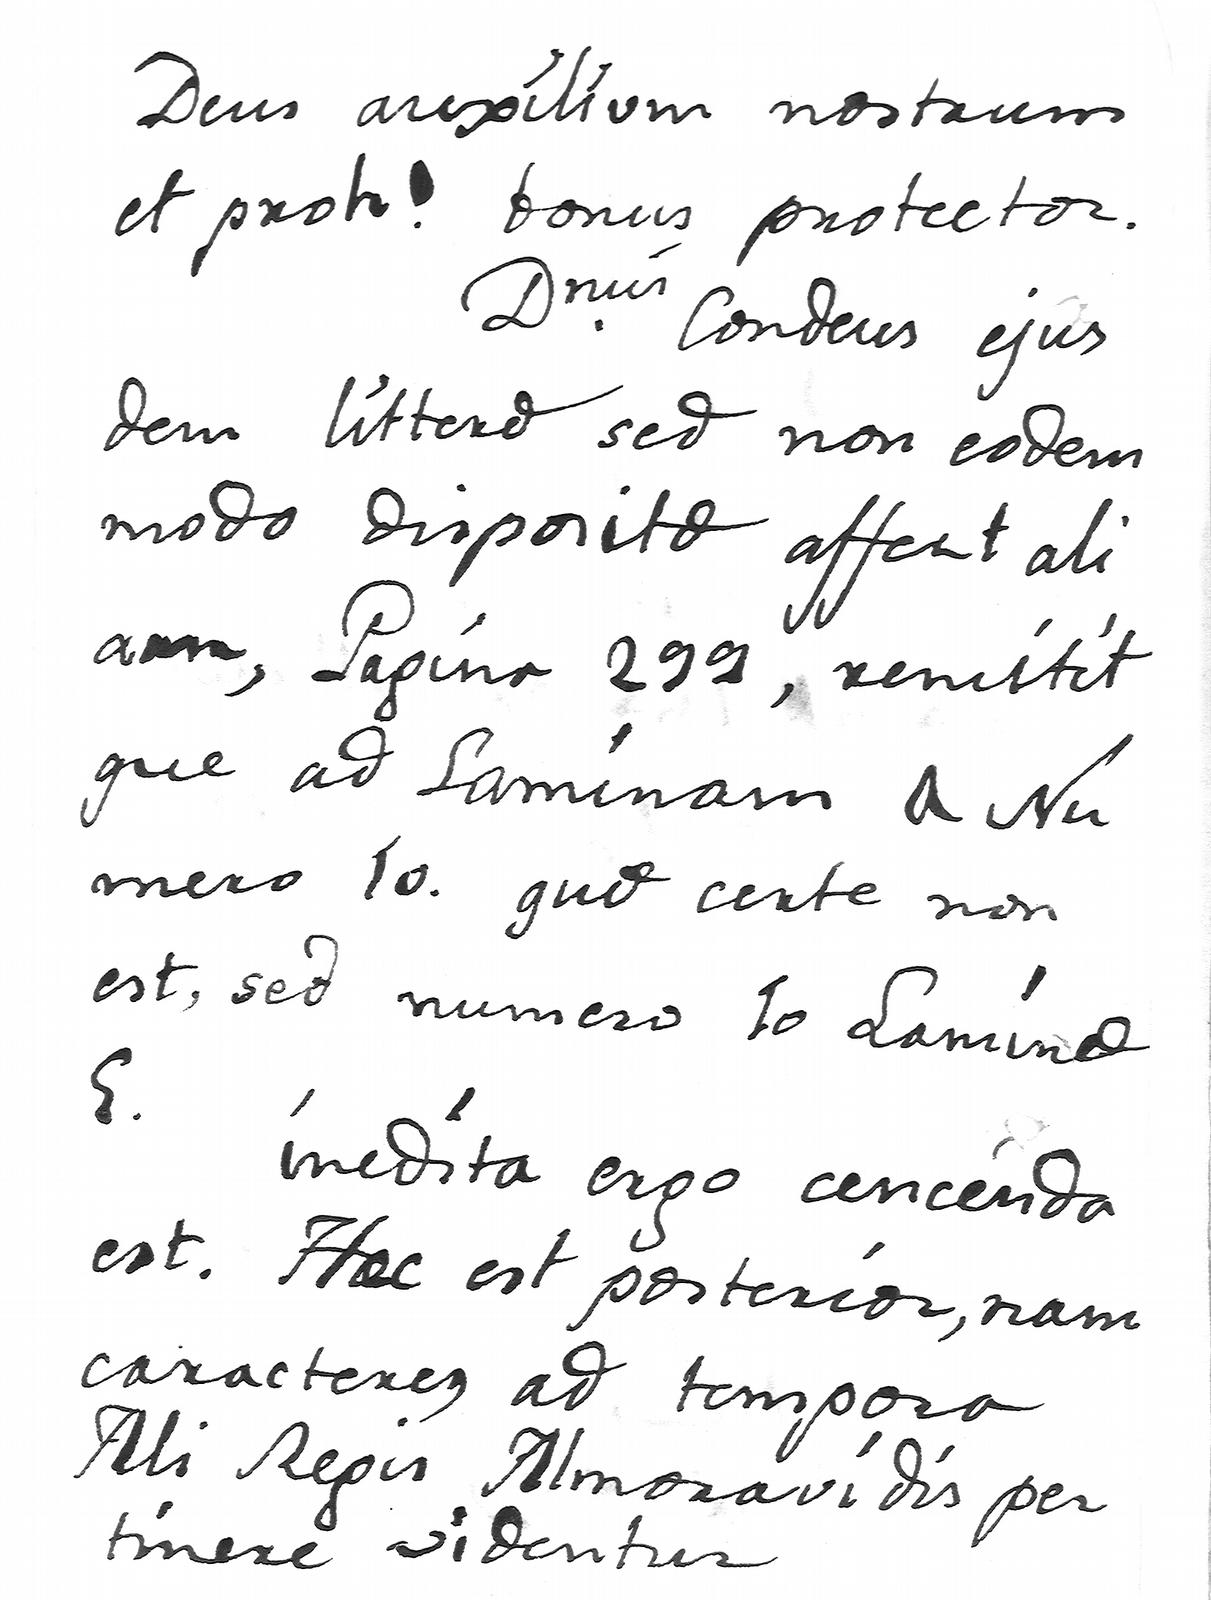 Deus auxilium nostrum
et proh! bonus protector.
Dnus. Condeus ejus
dem litteræ sed non eodem
modo dispositæ affert ali
am, Pagina 299, remitit
que ad Laminam A Nu
mero 10. quæ certe non
est, sed numero 10 Laminæ
E.
inedita ergo cencenda
est. Hæc est posterior, nam
caracteres ad tempora
Ali Regis Almoravidis per
tinere videntur